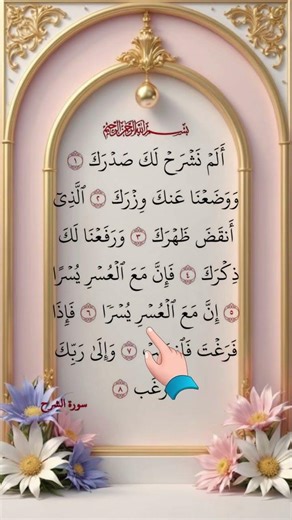 بِسْمِ اللَّهِ الرَّحْمَٰنِ الرَّحِيمِ
أَلَمْ نَشْرَحْ لَكَ صَدْرَكَ ١
وَوَضَعْنَا عَنكَ وِزْرَكَ ٢ ٱلَّذِىٓ
أَنقَضَ ظَهْرَكَ ٣ وَرَفَعْنَا لَكَ
ذِكْرَكَ ٤ فَإِنَّ مَعَ ٱلْعُسْرِ يُسْرًا
٥ إِنَّ مَعَ ٱلْعُسْرِ يُسْرًا ٦ فَإِذَا
فَرَغْتَ ٧ وَإِلَىٰ رَبِّكَ
٨
سورة الشرح